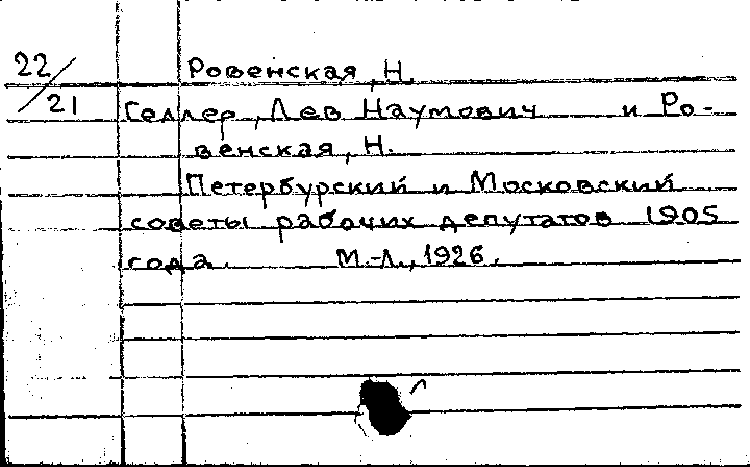 22/21
Ровенская, Н.
Геллер, Лев Наумович и Ро-
венская, Н.
Петербурский и Московский
советы рабочих депутатов 1905
года. М.-Л., 1926.